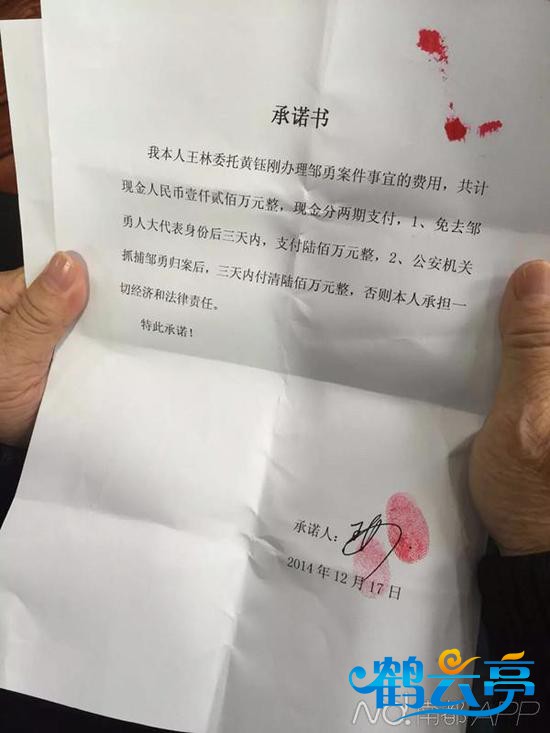 承诺书
我本人王林委托黄钰刚办理邹勇案件事宜的费用，共计
现金人民币壹仟贰佰万元整，现金分两期支付，1、免去邹
勇人大代表身份后三天内，支付陆佰万元整，2、公安机关
抓捕邹勇归案后，三天内付清陆佰万元整，否则本人承担一
切经济和法律责任。
特此承诺！
承诺人：
2014 年 12 月 17 日
鹤云亭
南都APP